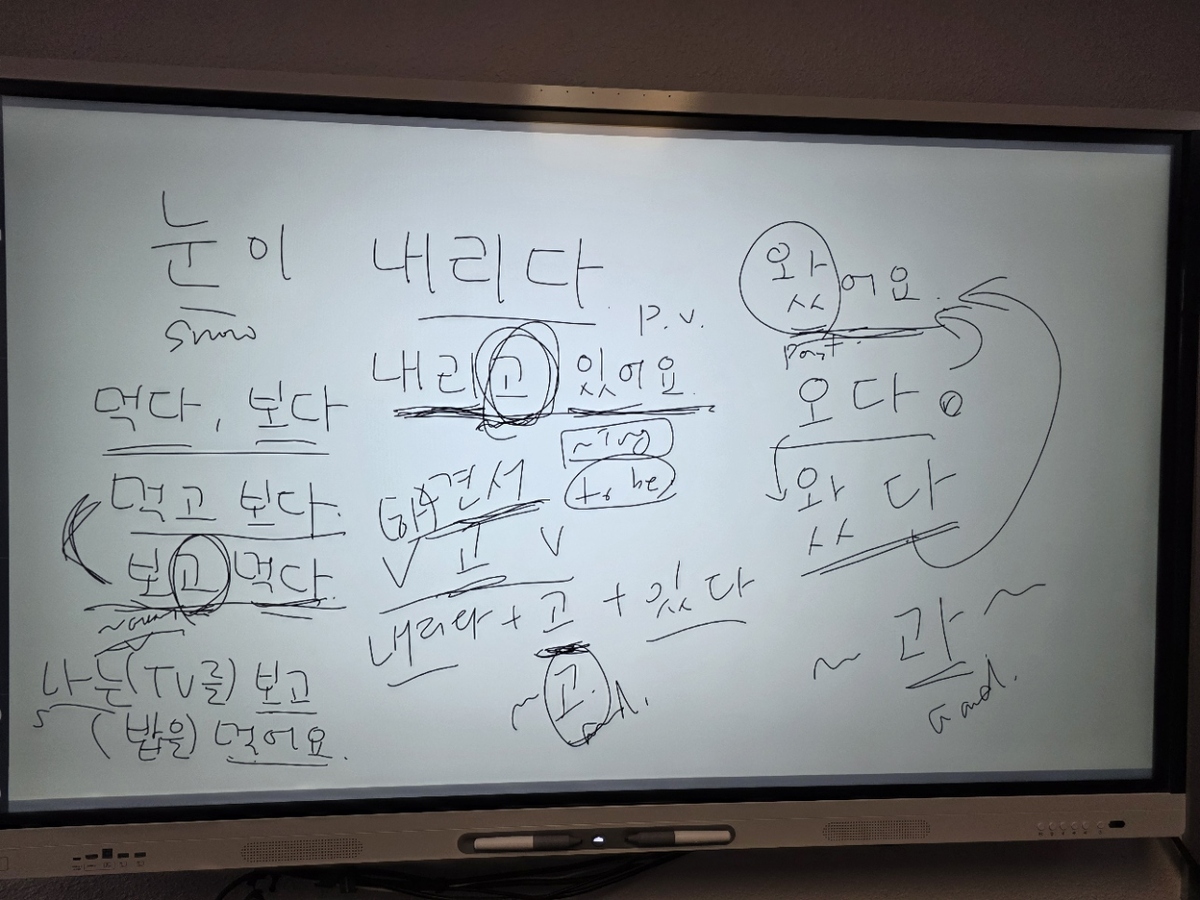 눈이 내리다
snow
내리고 있어요.
P.V.
~ing
to be
먹다, 보다
먹고 보다.
보고 먹다
나는 (TV를) 보고
S
(밥을) 먹어요.
견서
V 고 V
내리다 + 고 + 있다
~ 고
and.
왔어요.
past.
오다
왔다
~ 과 ~
and.